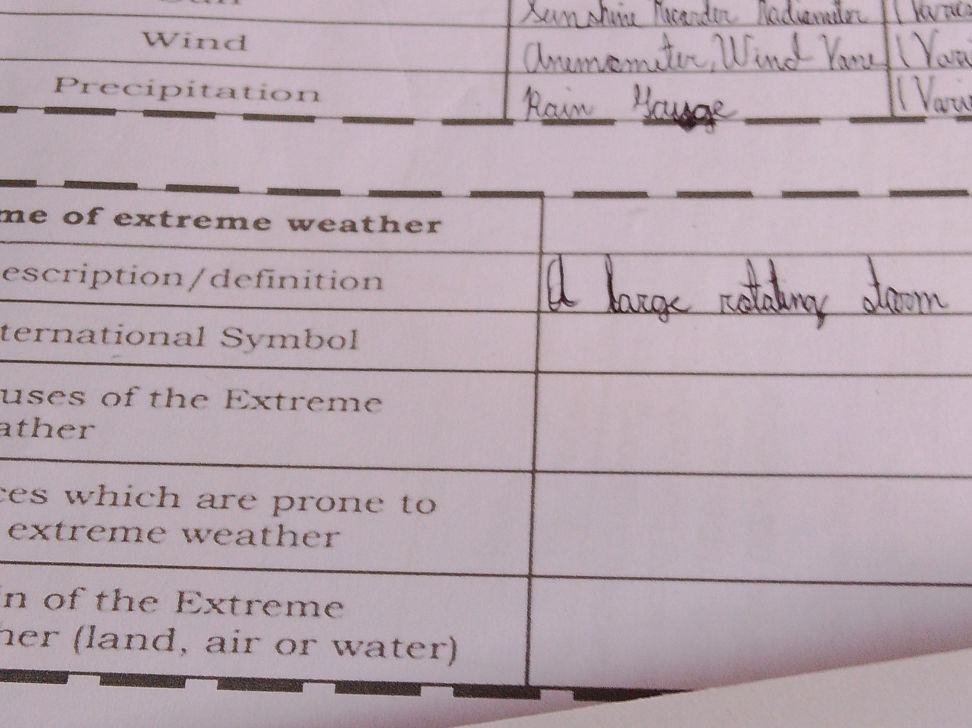 Sunshine Recorder Radiometer (Varies
Wind Anemometer, Wind Vane (Vari
Precipitation Rain Gauge (Vari
me of extreme weather
escription/definition A large rotating storm
ternational Symbol
uses of the Extreme
ather
ces which are prone to
extreme weather
n of the Extreme
her (land, air or water)